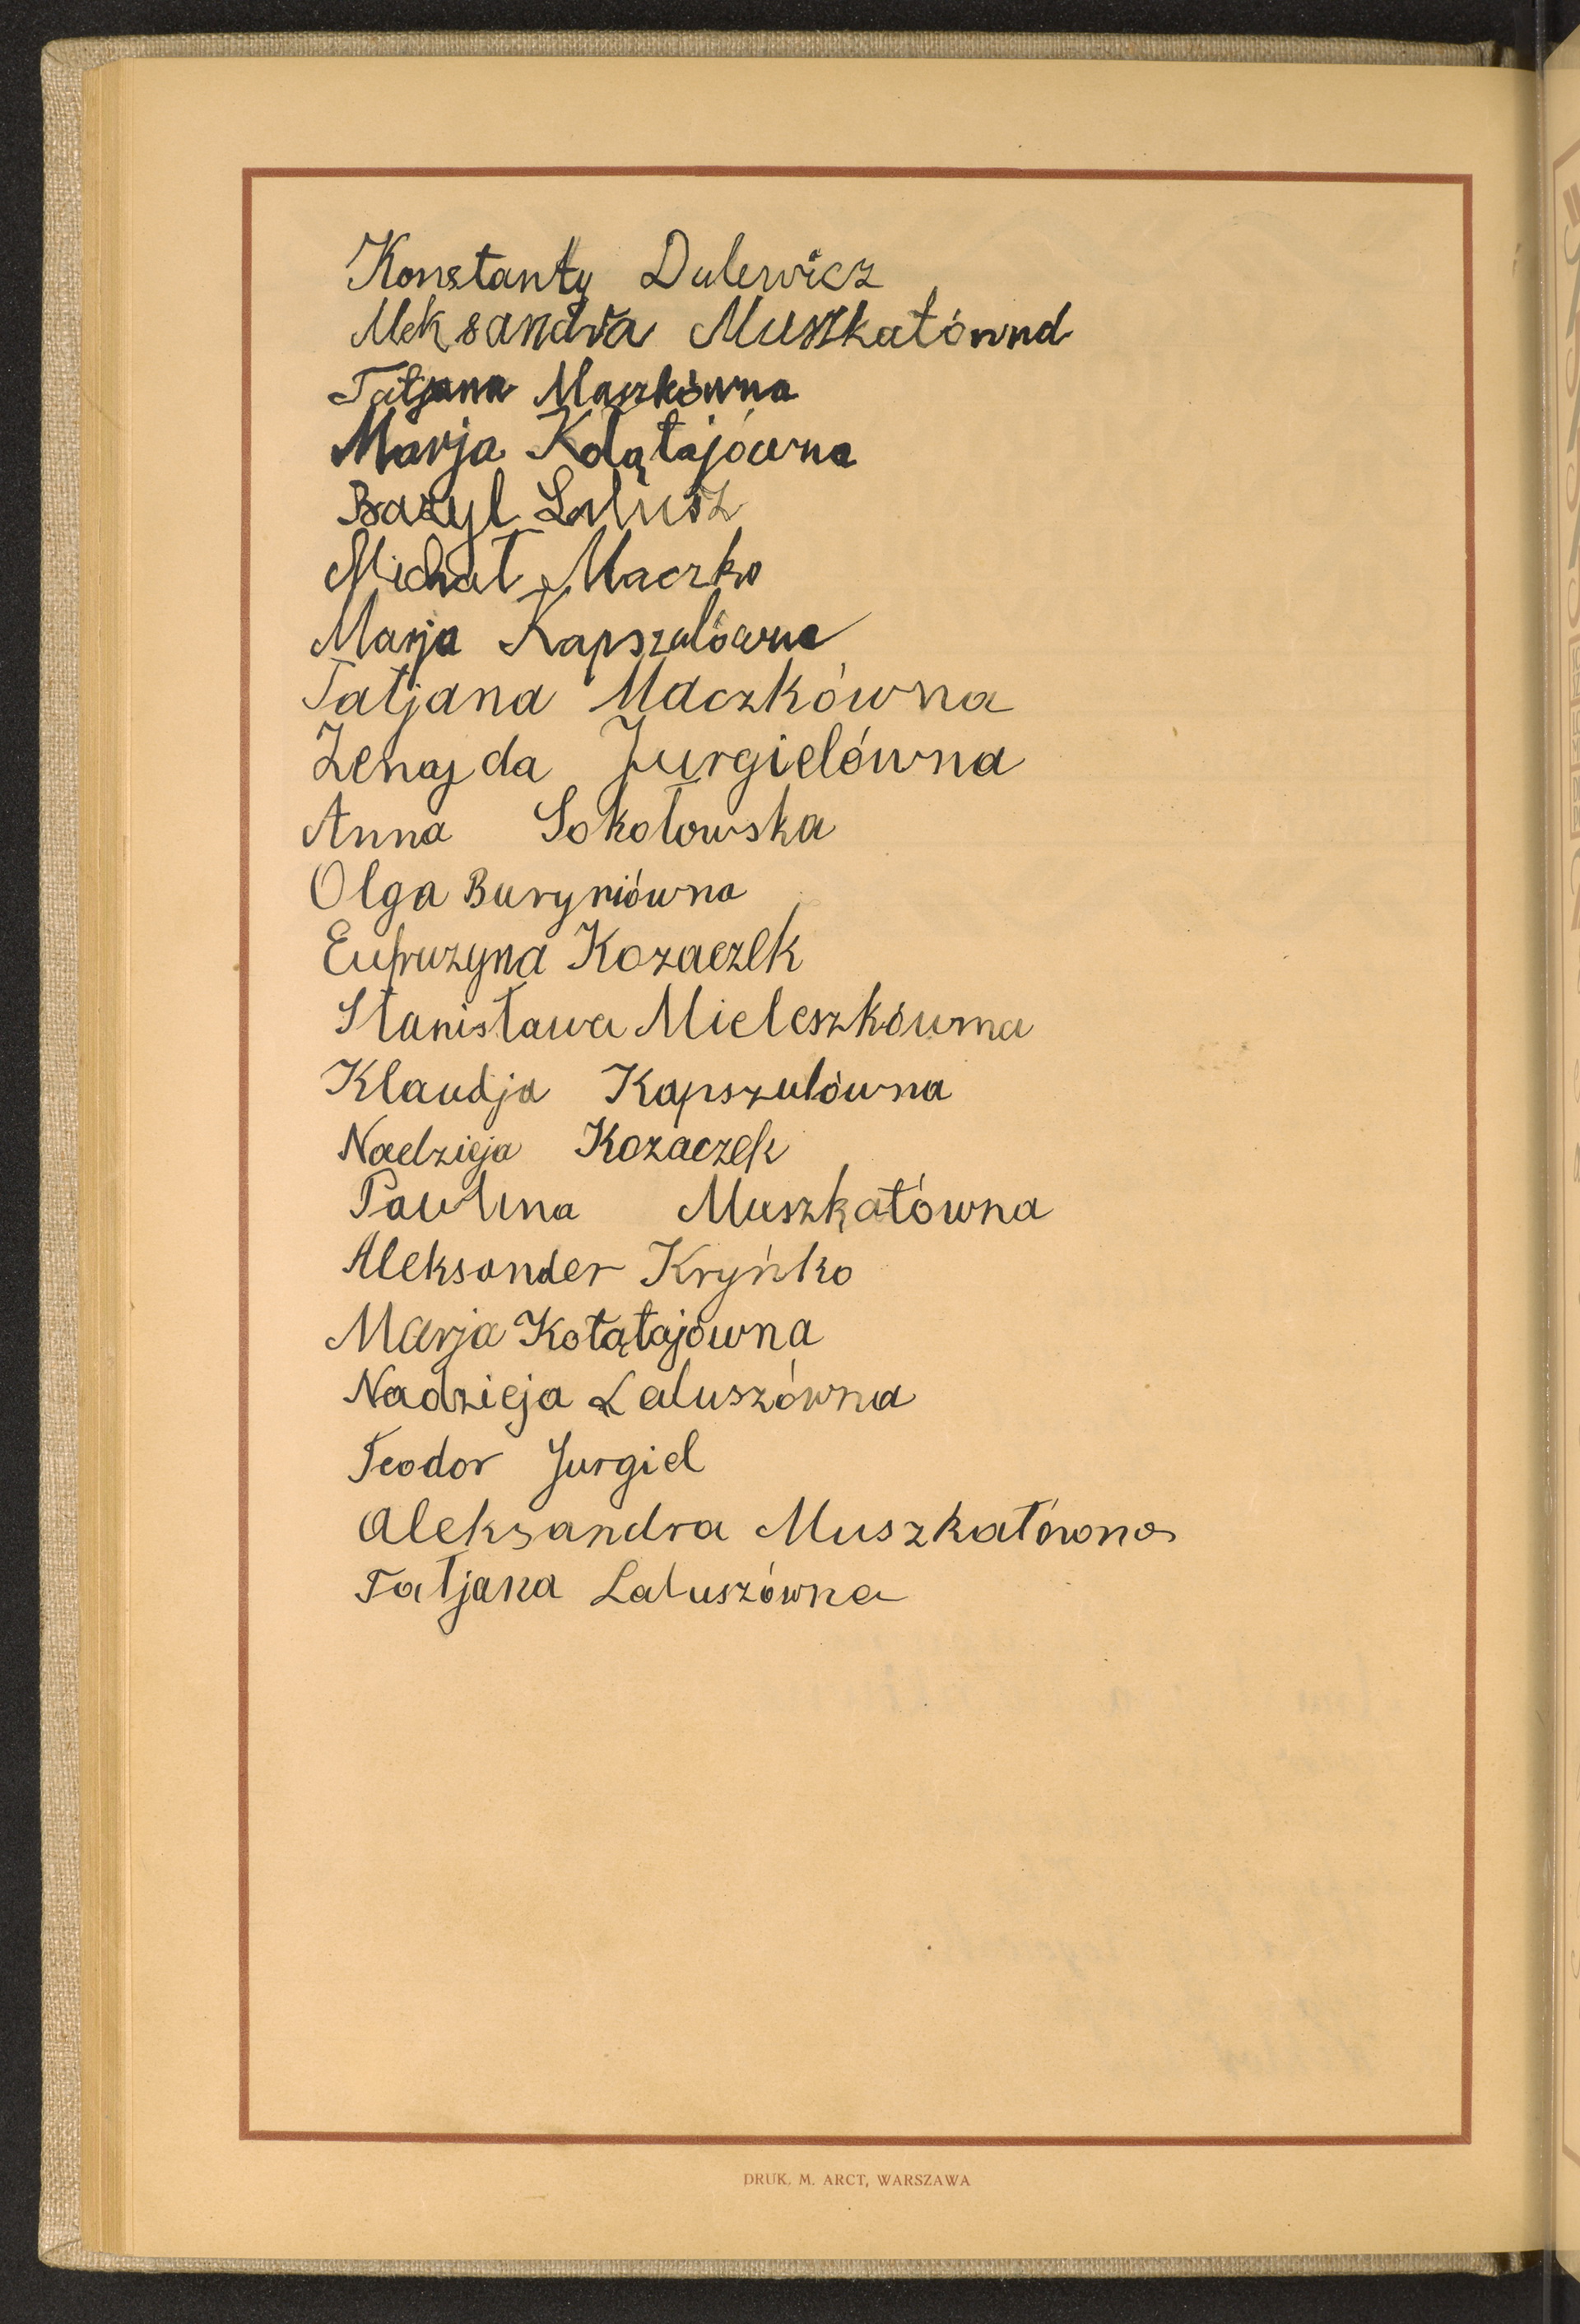 Konstanty Dulewicz
Aleksandra Muszkatówna
Tatjana Maczkówna
Marja Kołątajówna
Bazyl Lalusz
Michał Maczko
Marja Kapszulówna
Tatjana Maczkówna
Zenajda Jurgielówna
Anna Sokołowska
Olga Buryniówna
Eufruzyna Kozaczek
Stanisława Mieleszkówna
Klaudja Kapszulówna
Nadzieja Kozaczek
Paulina Muszkatówna
Aleksander Kryńko
Marja Kołątajówna
Nadzieja Laluszówna
Teodor Jurgiel
Aleksandra Muszkatówna
Tatjana Laluszówna
DRUK. M. ARCT, WARSZAWA